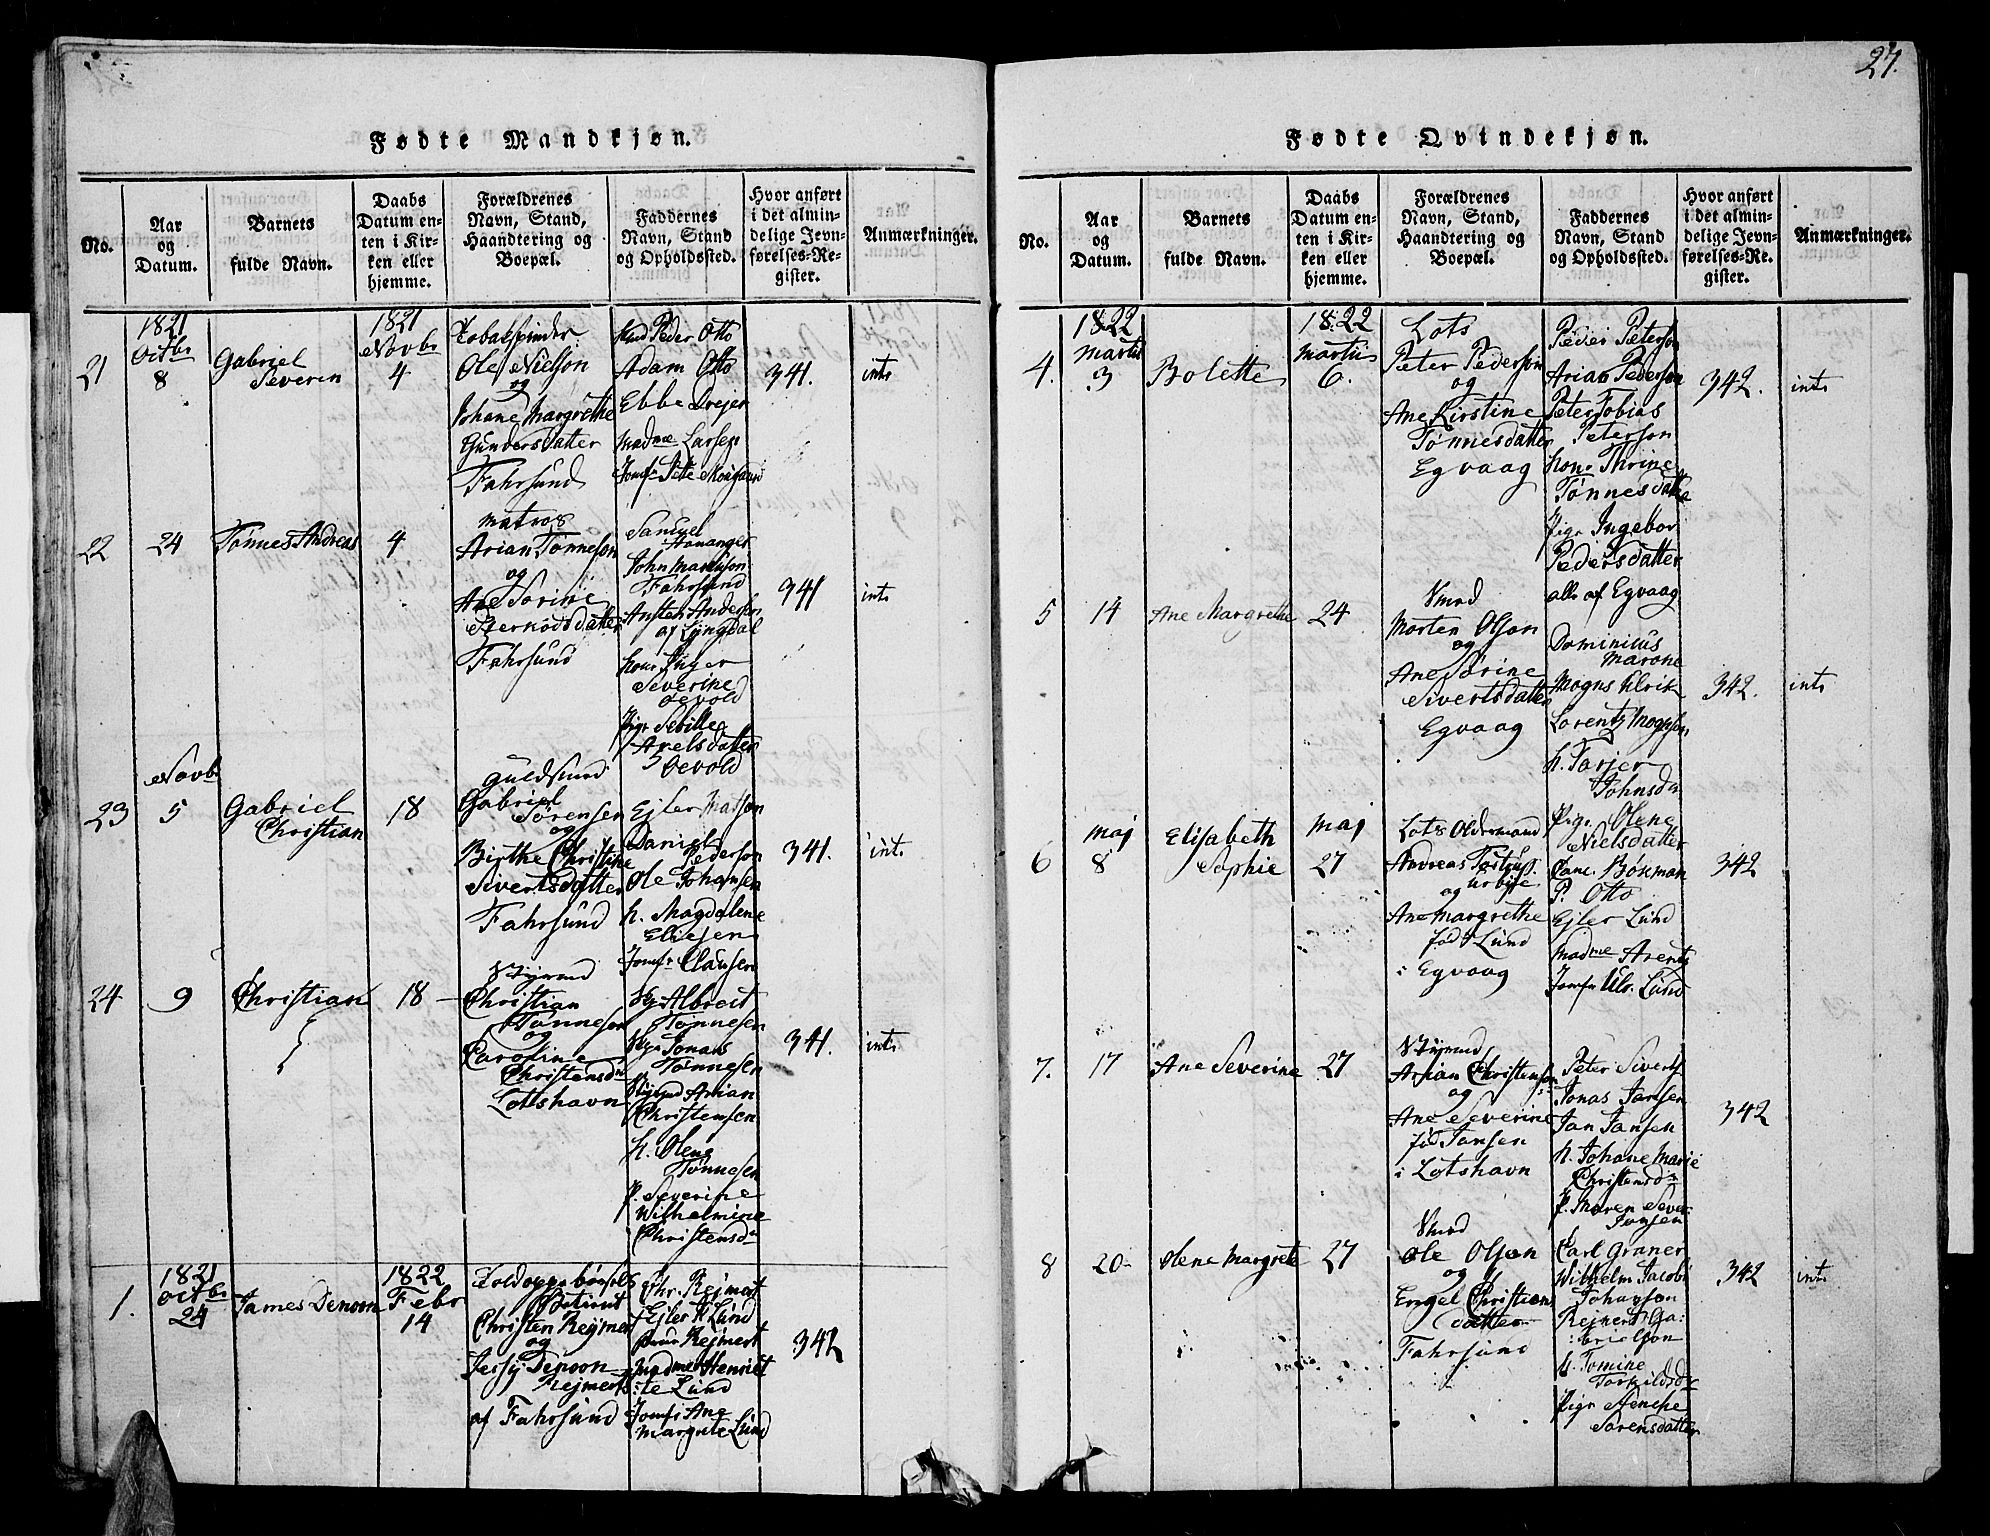 27.
Fødte Mandkjøn.
No.
Aar
og
Datum.
Barnets
fulde Navn.
Daabs
Datum en-
ten i Kir-
ken eller
hjemme.
Forældrenes
Navn, Stand,
Haandtering og
Boepæl.
Faddernes
Navn, Stand
og Opholdssted.
Hvor anført
i det almin-
delige Jevn-
førelses-Re-
gister.
Anmærkninger.
21
1821
Octbr
8
Gabriel
Severin
1821
Novbr
4
Tobakspinder
Ole Nielson
og
Johane Margrethe
Gundersdatter
Fahrsund
Peder Otto
Adam Otto
Ebbe Drejer
Madme Larsen
Jomfr
341.
int.
22
24
Tønnes Andreas
4
matros
Arian Tønneson
og
Ane Sorine
Sterkodsdatter
Fahrsund
Samuel
John
Fahrsund
Anderson
af Lyngdal
Inger
Severine
Oevold
Pigr Sebille
Oevold
341
int.
23
Novbr
5
Gabriel
Christian
18
Guldsmed
Gabriel
Sørensen
og
Birthe Christine
Sivertsdatter
Fahrsund
Ejler
Daniel
Pederson
Ole Johansen
h. Magdalene
Eliesen
Jomfr Clausen
341.
int.
24
9
Christian
18
Styrmd
Christian
Tønneson
og
Caroline
Christensdr
Lotshavn
Albreit
Tønnesen
Jonas
Tønnesen
Arian
Christensen
h. Olene
Tønnesen
P. Severine
Wilhelmine
Christensdr
341.
int.
1.
1821
Octbr
24
James Denoon
1822
Febr
14
Betient
Christen Rejmert
og
Jessy Denoon
Rejmert
af Fahrsund
Chr. Rejmert
Ejler K Lund
Rejmert
Madme Henriet
te Lund
Jomfr Ane
Margrete Lund
342
Fødte Qvindekjøn.
No.
Aar
og
Datum.
Barnets
fulde Navn.
Daabs
Datum en-
ten i Kir-
ken eller
hjemme.
Forældrenes
Navn, Stand,
Haandtering og
Boepæl.
Faddernes
Navn, Stand
og Opholdssted.
Hvor anført
i det almin-
delige Jevn-
førelses-Re-
gister.
Anmærkninger.
4.
1822
Martii
3
Bolette
1822
Martii
6.
Lots
Peter Pederson
og
Ane Kirstine
Tønnesdatter
Egvaag
Peder Peterson
Arian Pederson
Peter Tobias
Peterson
Kone Thrine
Tønnesdatter
Pigr Ingebor
Pedersdatter
alle af Egvaag
342.
int.
5
14
Ane Margrethe
24
Smed
Morten Olson
og
Ane Sørine
Sivertsdatter
Egvaag
Dominicus
Marone
Mogns Ulrik
Lorentz Mognson
h. Tarjer
Johnsdr
Pigr Olene
Nielsdatter
342.
int.
6
Maj
8
Elisabeth
Sophie
Maj
27
Lots Oldermand
Andreas
og
Ane Margrethe
fød Lund
i Egvaag
Canc. Bøkman
P. Otto
Ejler Lund
Madme Arents
Jomfr Ulr. Lund
342
7.
17
Ane Severine
27
Styrmd
Arian Christenson
og
Ane Severine
fød Jansen
i Lotshavn
Peter Sivert
Jonas Jansen
Jan Jansen
h. Johane Marie
Christensdr
P. Maren Sever:
Jonsen
342
8
20
Olene Margrete
27
Smed
Ole Olson
og
Engel Christians
datter
Fahrsund
Carl Graner
Wilhelm Jacobi
Johanson
Rejnert Ga:
brielson
Tomine
Torkildsdr
Pigr
Sørensdatter
342
int.